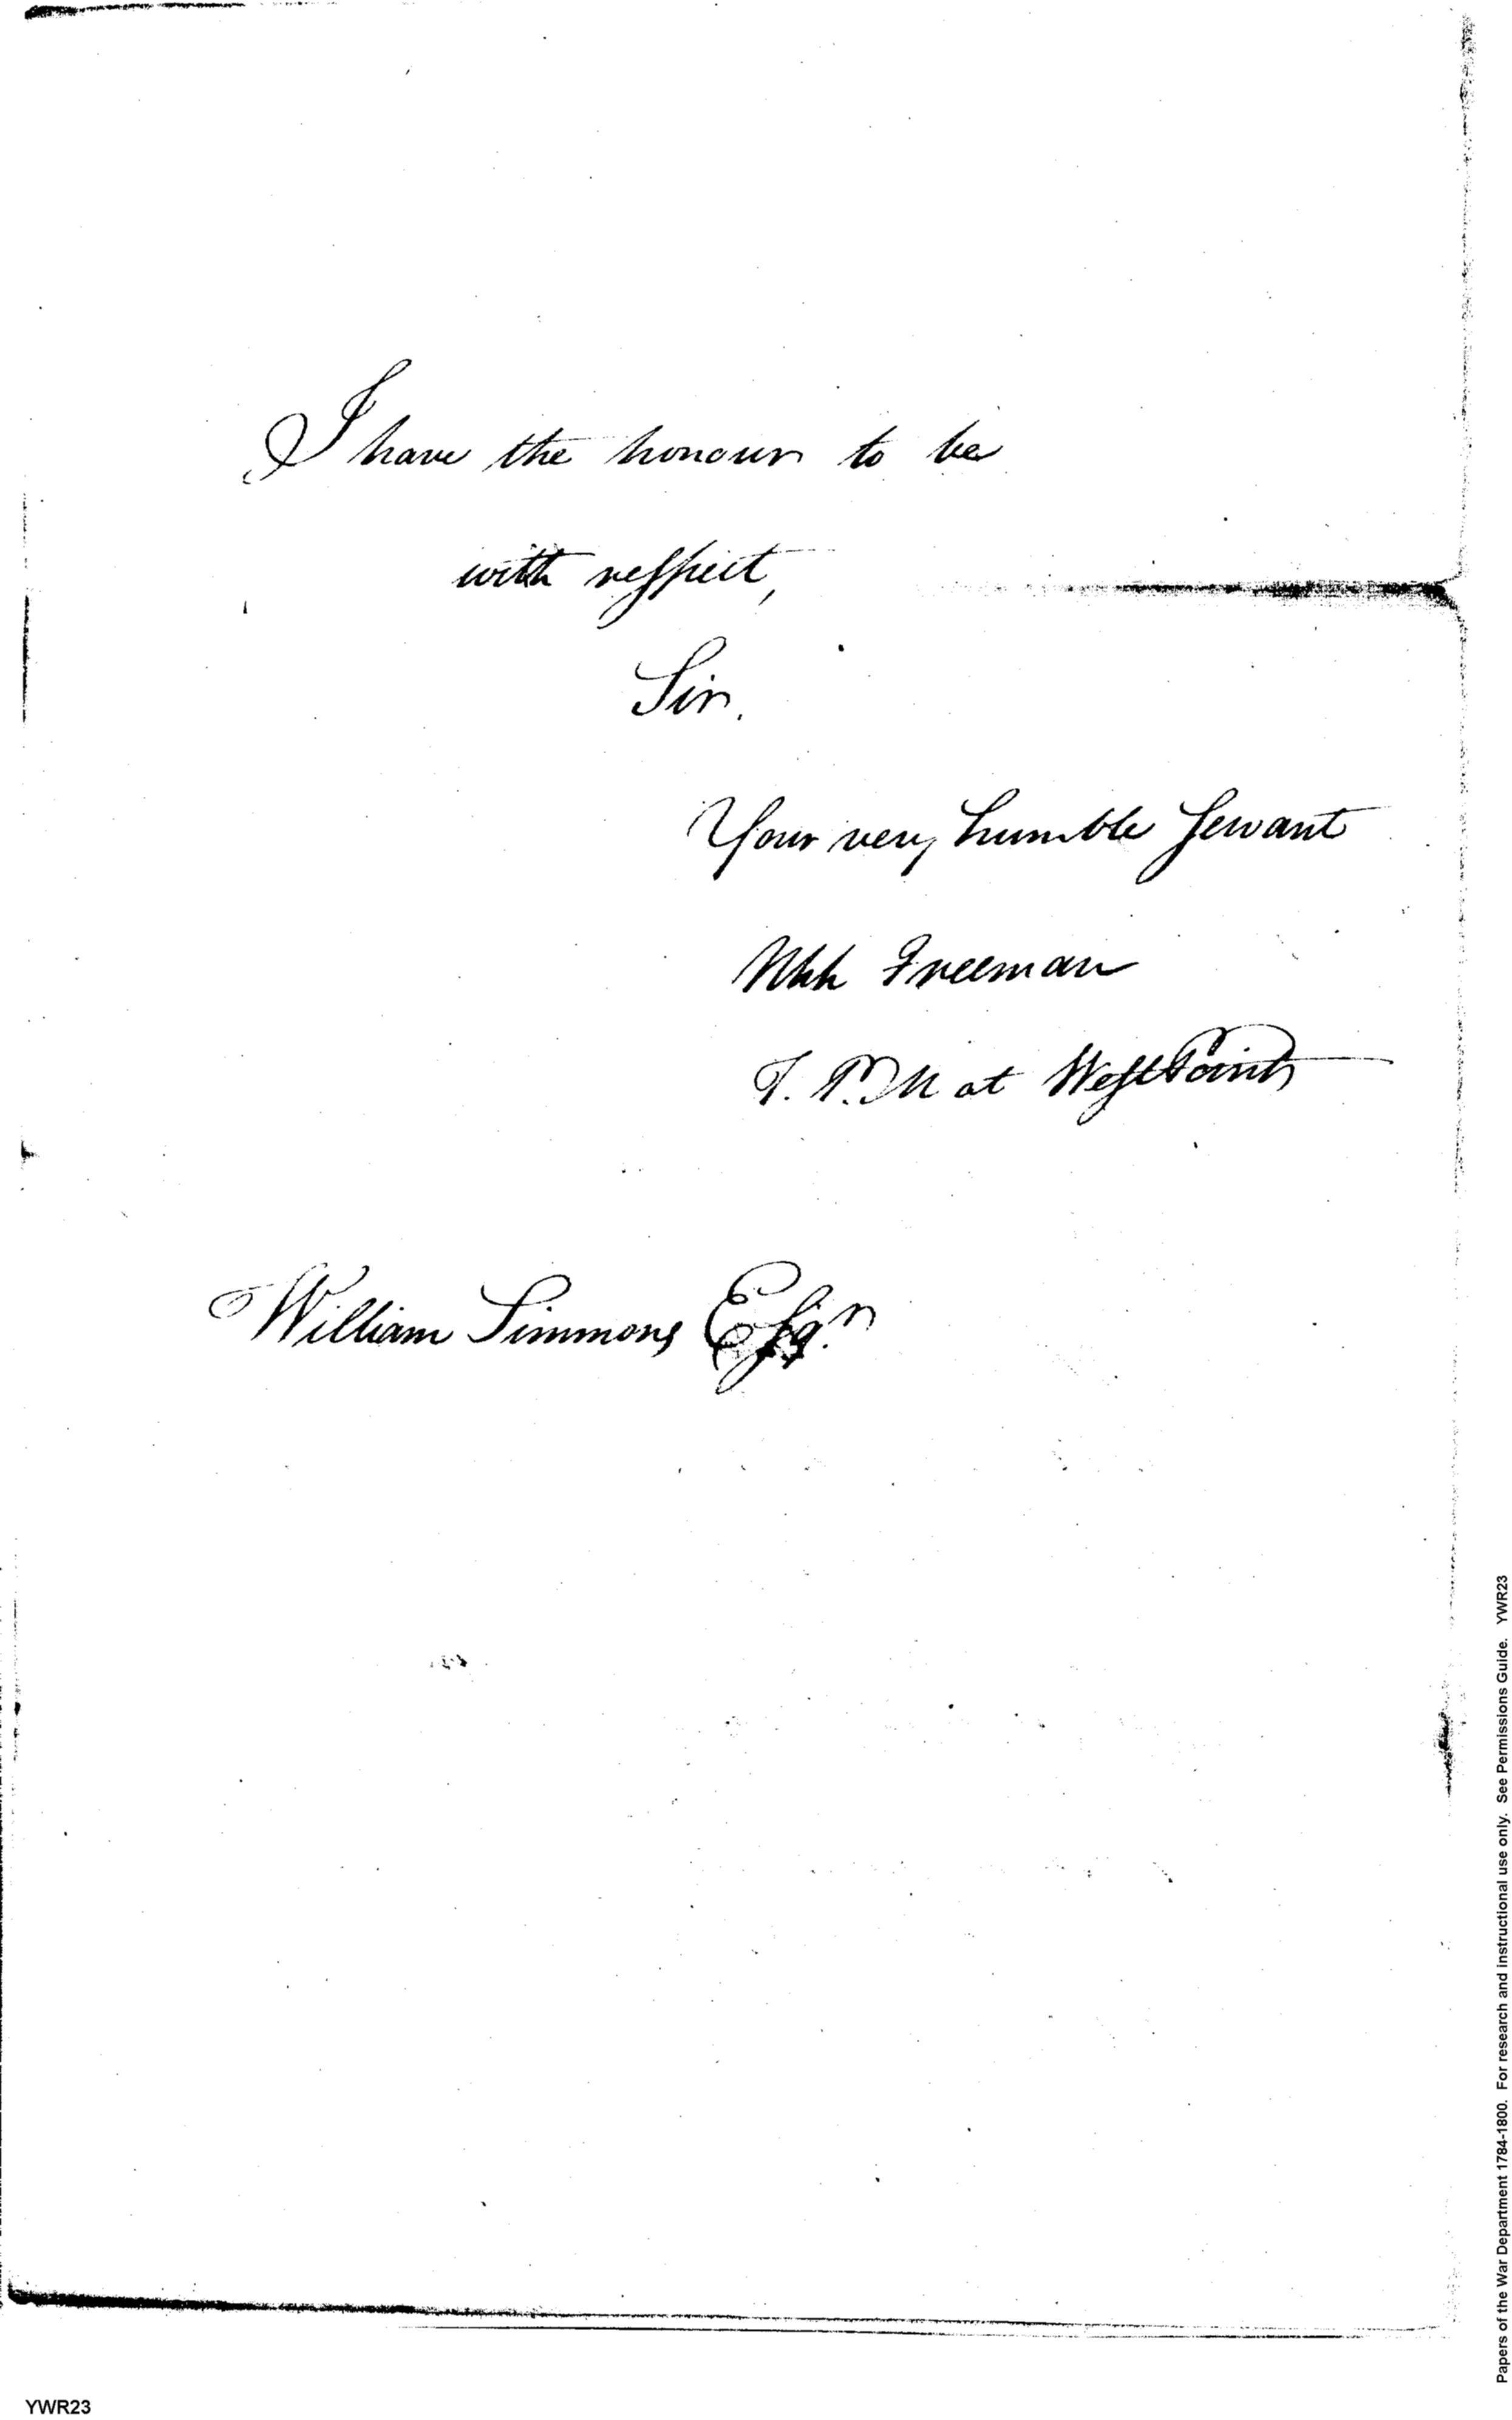 I have the honour to be
with respect,
Sir,
Your very humble Servant
Freeman
T. P. M at West Point
William Simmons Esqr.
Papers of the War Department 1784-1800. For research and instructional use only. See Permissions Guide. YWR23
YWR23